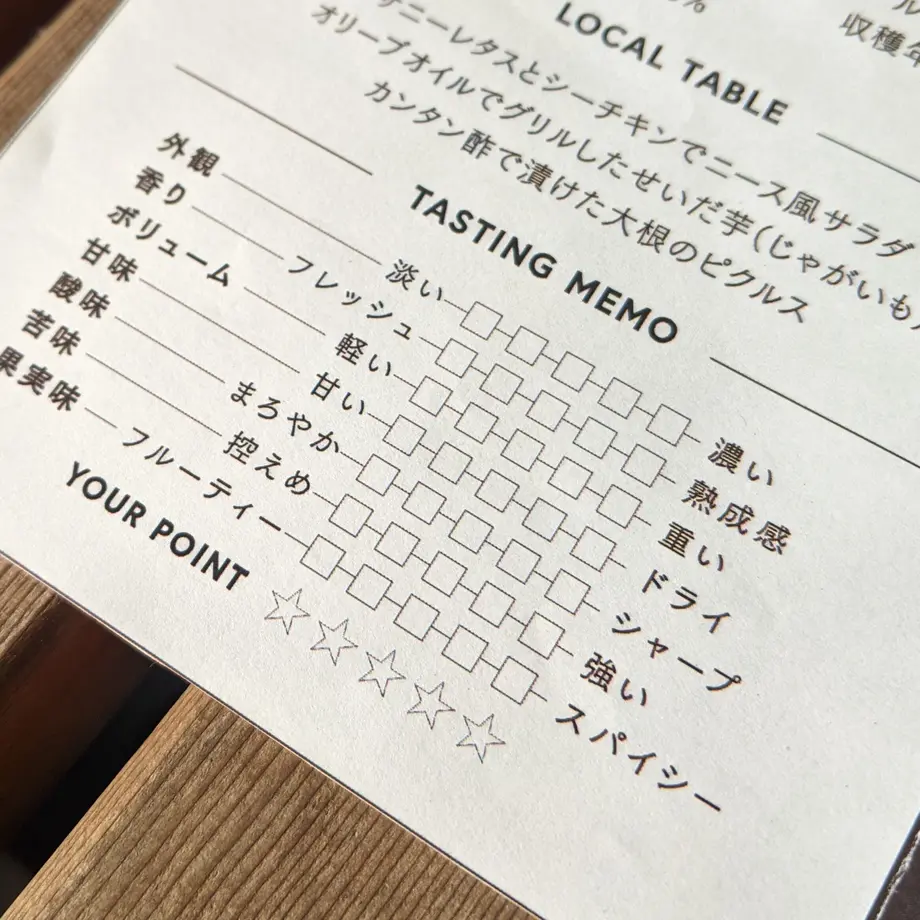 %
収穫年
LOCAL TABLE
サニーレタスとシーチキンでニース風サラダ
オリーブオイルでグリルしたせいだ芋(じゃがいも
カンタン酢で漬けた大根のピクルス
TASTING MEMO
外観 淡い 濃い
香り フレッシュ 熟成感
ボリューム 軽い 重い
甘味 甘い ドライ
酸味 まろやか シャープ
苦味 控えめ 強い
果実味 フルーティー スパイシー
YOUR POINT ☆☆☆☆☆